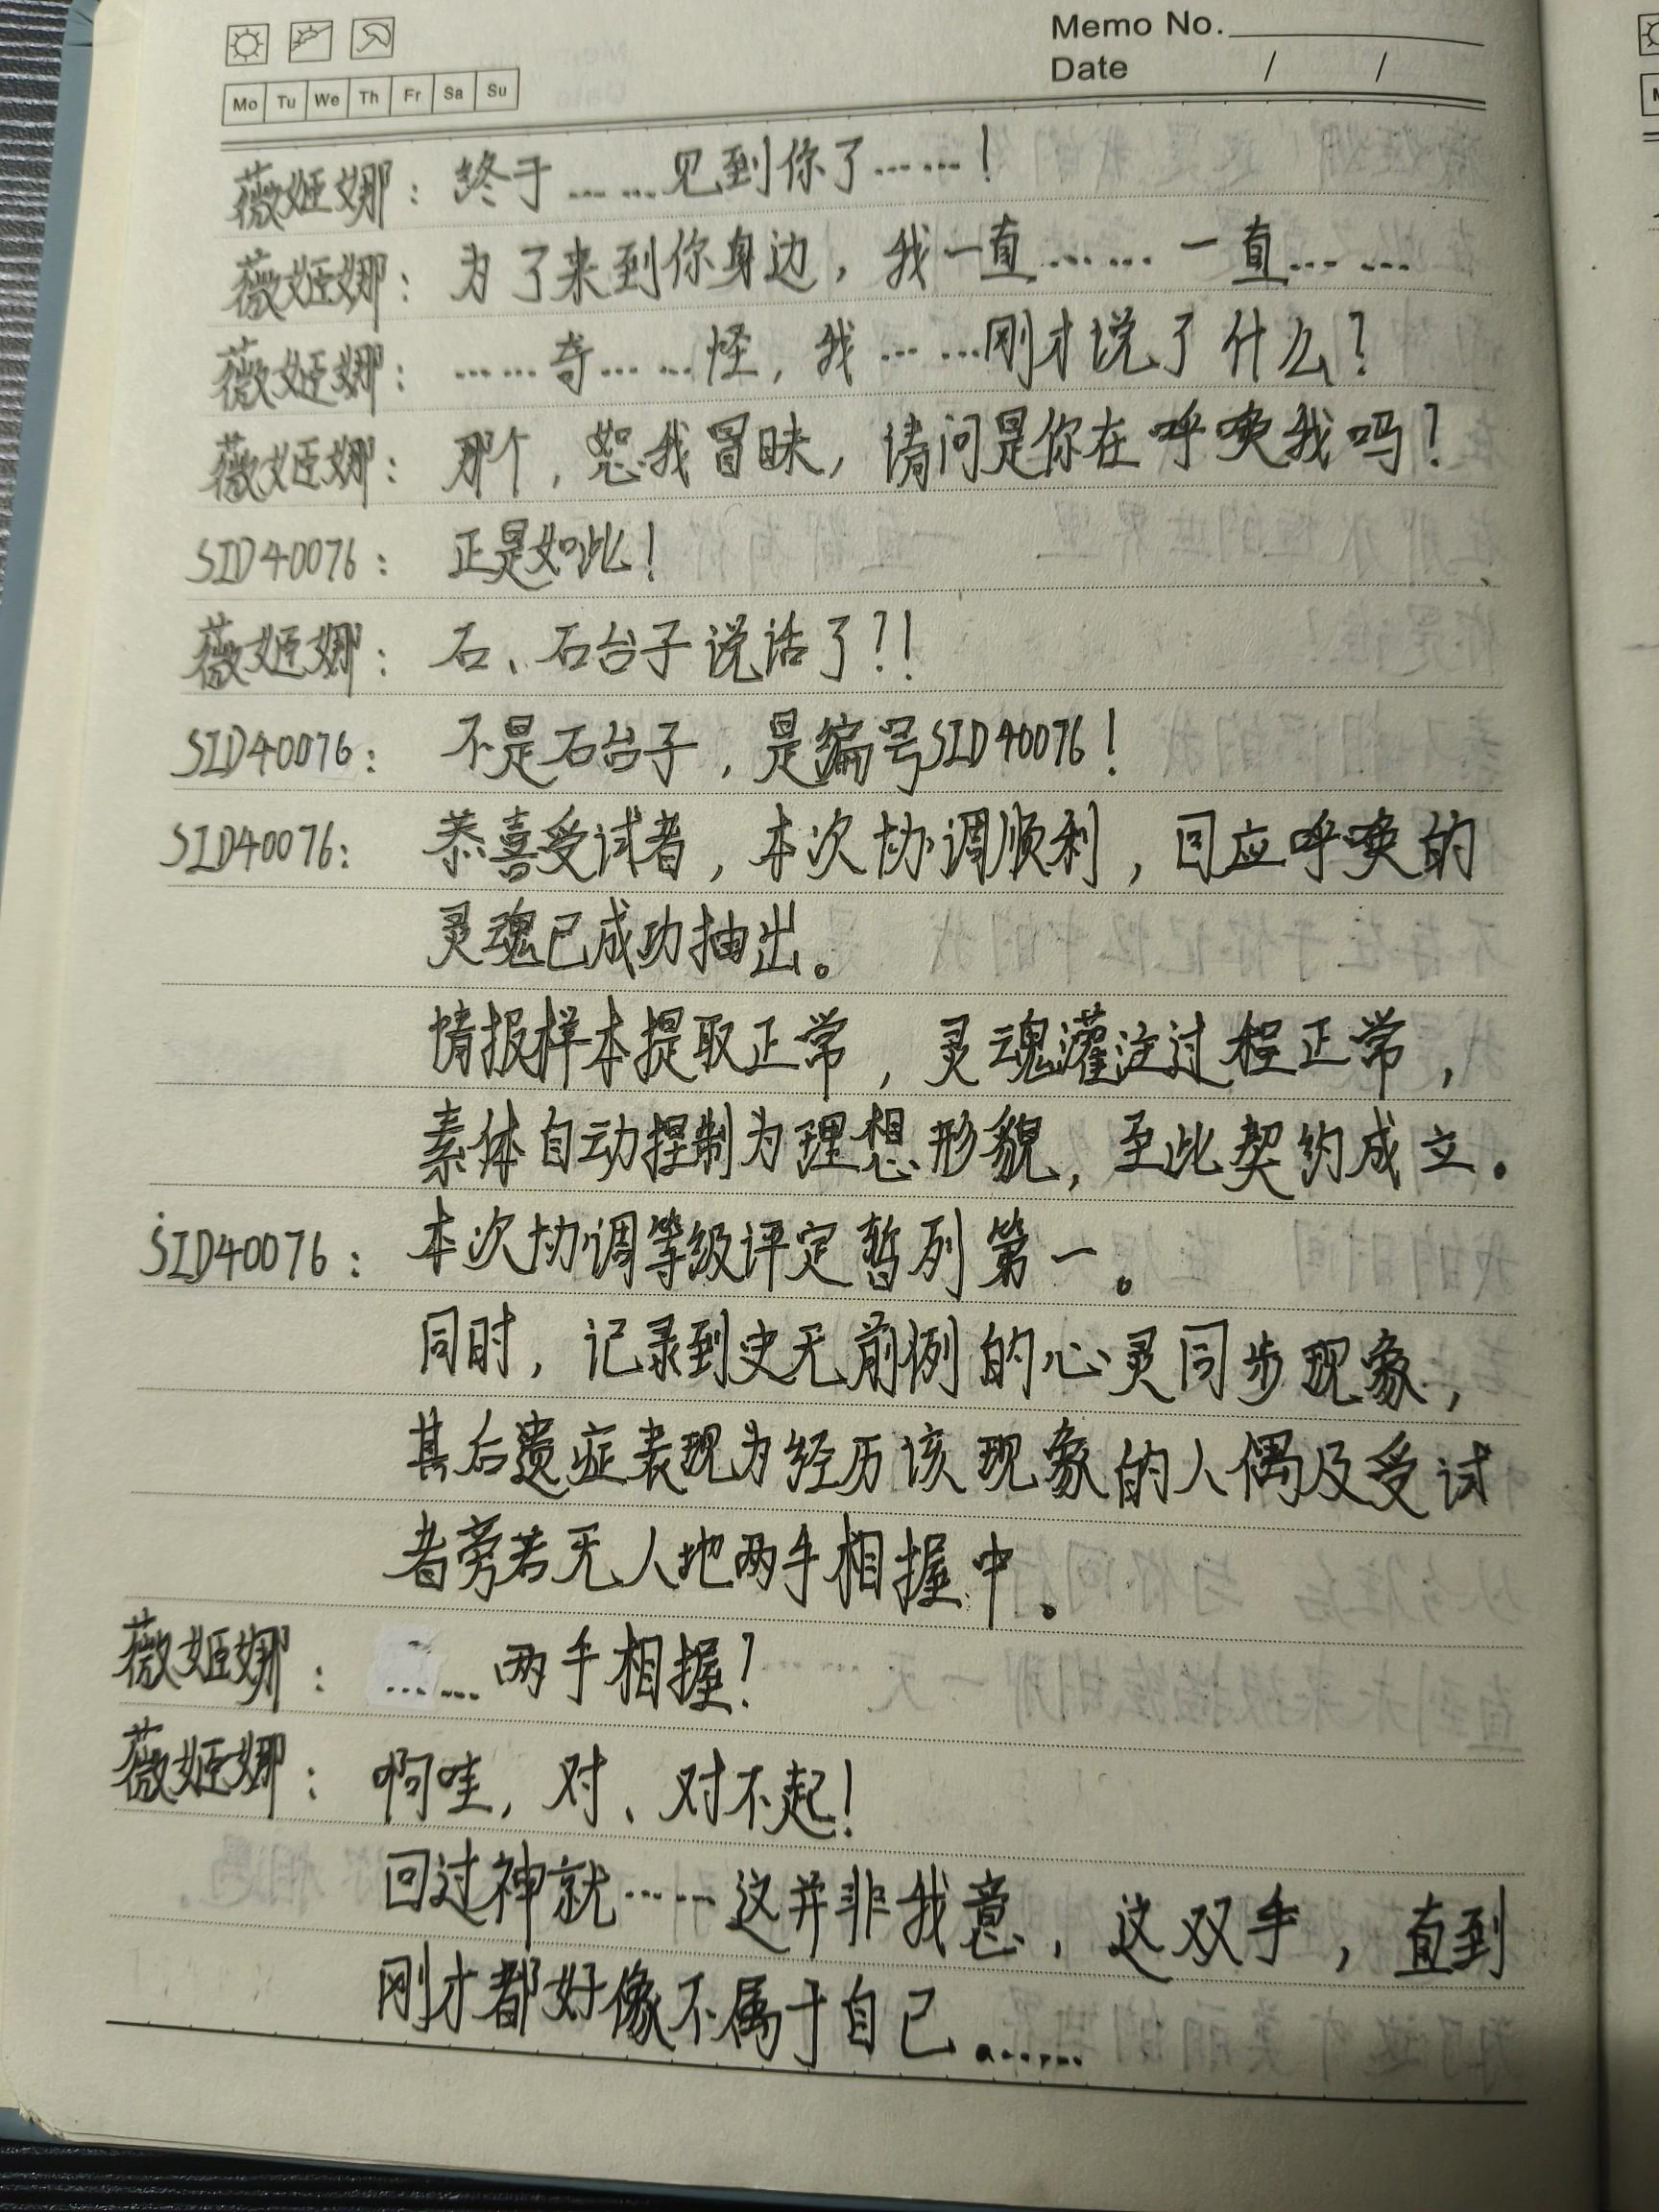 Memo No.
Date / /
Mo Tu We Th Fr Sa Su
薇姬娜：终于……见到你了……！
薇姬娜：为了来到你身边，我一直……一直……
薇姬娜：……奇……怪，我……刚才说了什么？
薇姬娜：那个，恕我冒昧，请问是你在呼唤我吗？
SID40076：正是如此！
薇姬娜：石、石台子说话了？！
SID40076：不是石台子，是编号SID40076！
SID40076：恭喜受试者，本次协调顺利，回应呼唤的
灵魂已成功抽出。
情报样本提取正常，灵魂灌注过程正常，
素体自动捏制为理想形貌，至此契约成立。
SID40076：本次协调等级评定暂列第一。
同时，记录到史无前例的心灵同步现象，
其后遗症表现为经历该现象的人偶及受试
者旁若无人地两手相握中。
薇姬娜：……两手相握！
薇姬娜：啊哇，对、对不起！
回过神就……这并非我意，这双手，直到
刚才都好像不属于自己……